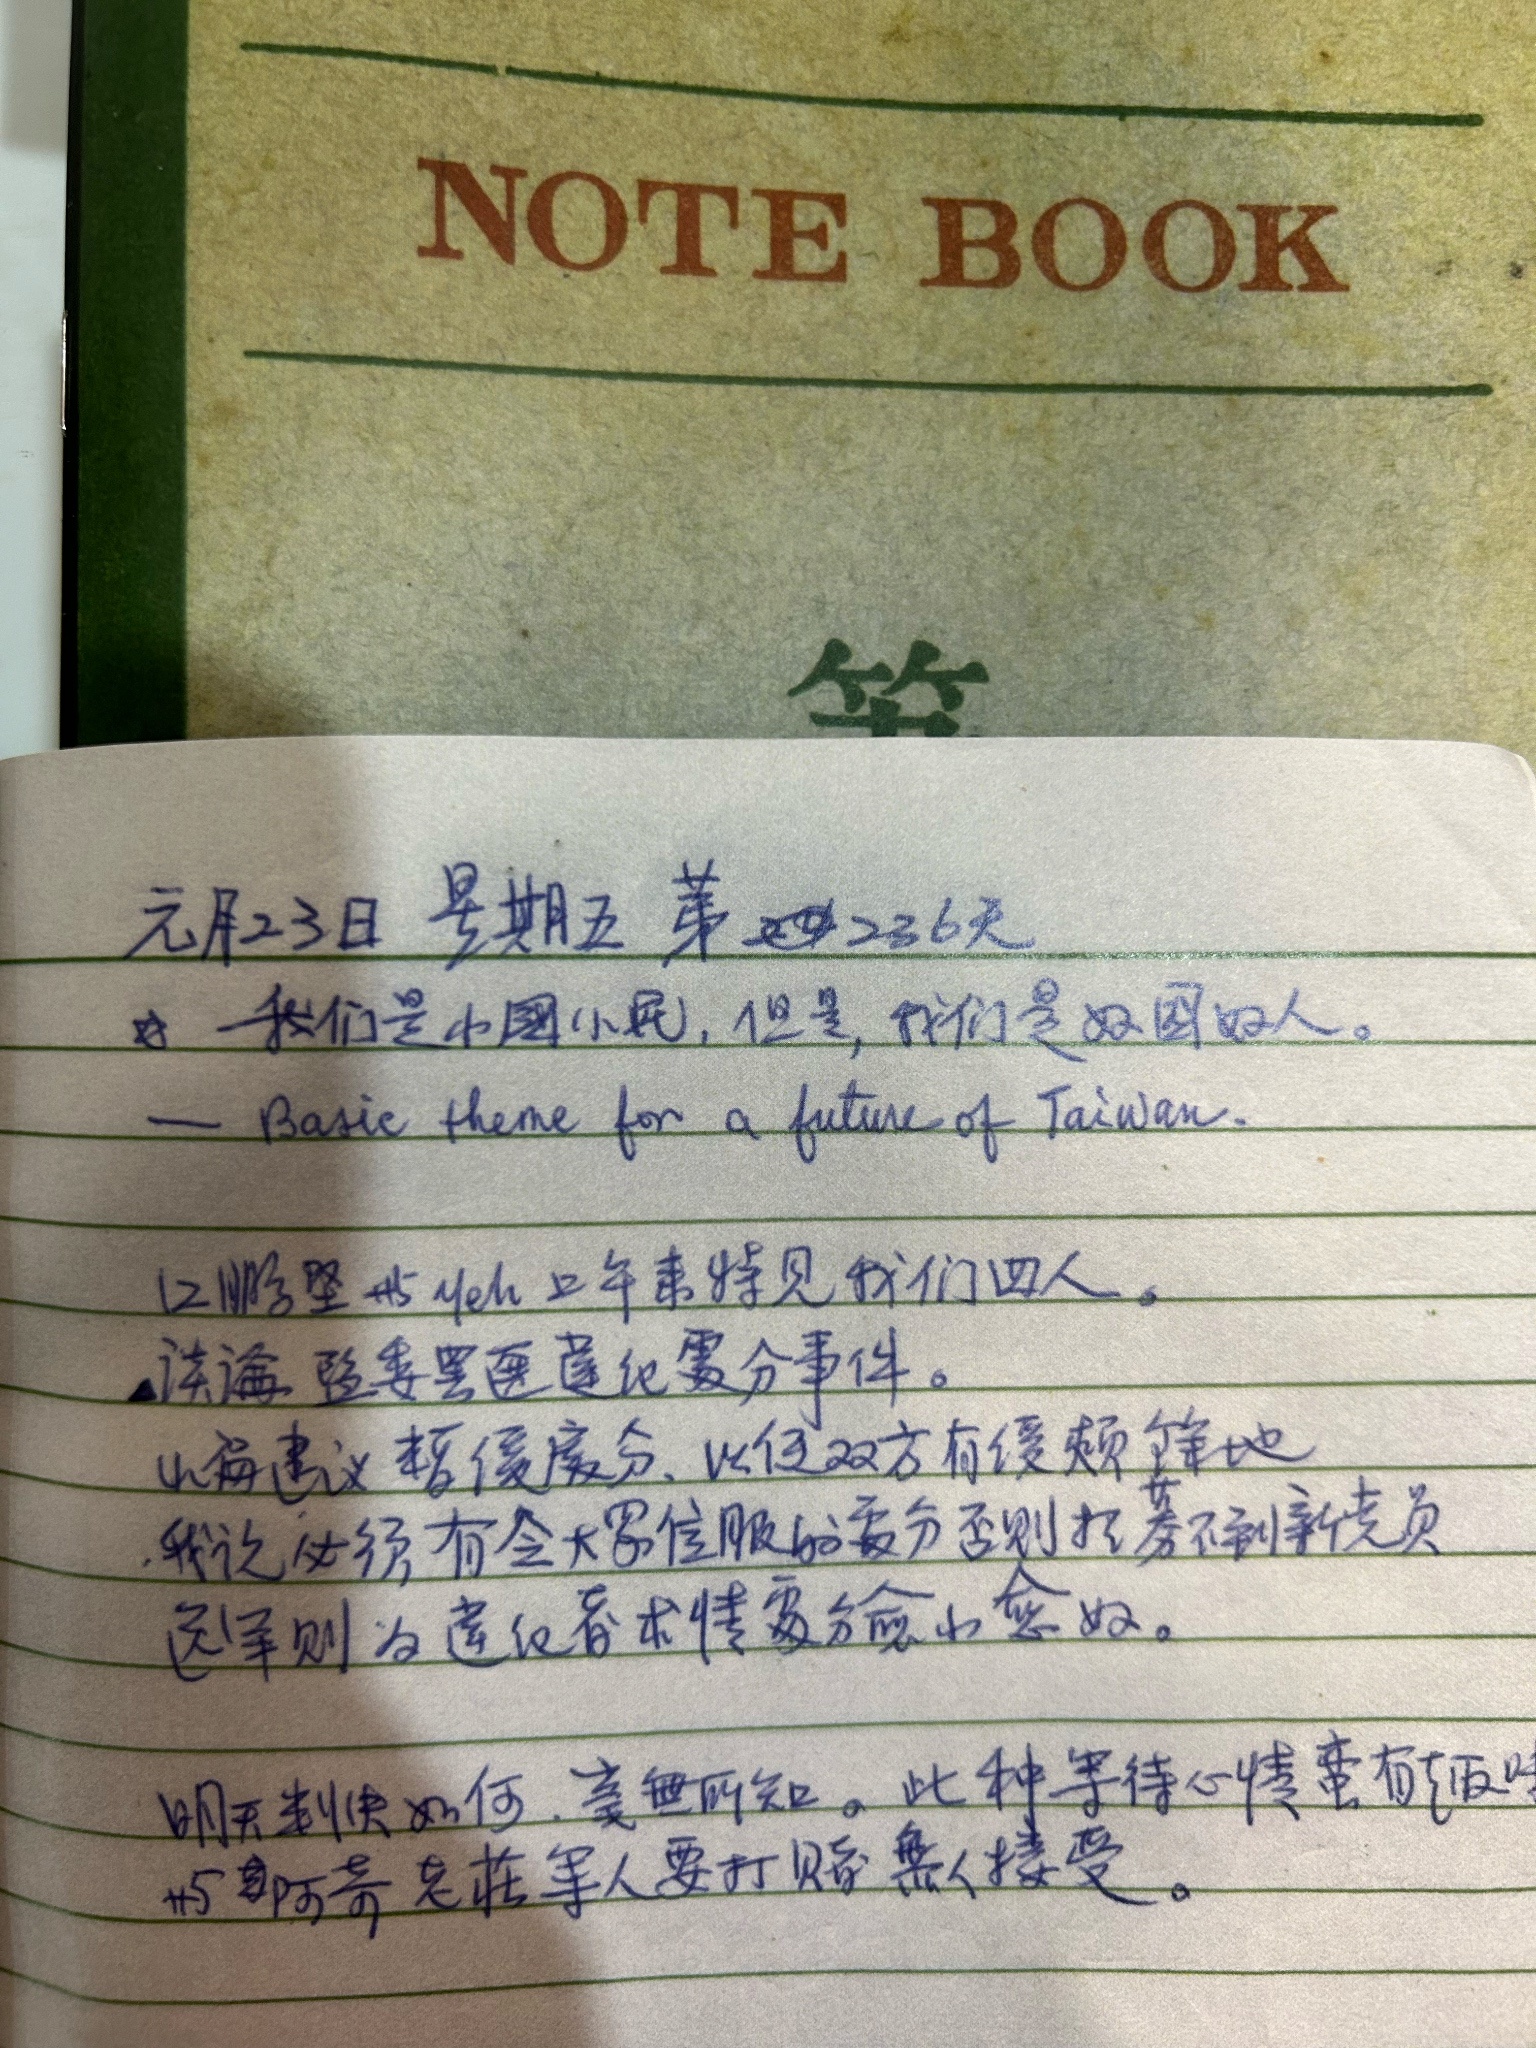 NOTE BOOK
元月23日 星期五 第 236天
我们是小國小民，但是，我们是好国好人。
— Basic theme for a future of Taiwan.
江鵬堅 #5 Yeh 上午來特見我们四人。
談論監委罢選違纪處分事件。
小海建议暂缓處分、以使双方有缓頰餘地
我说必须有令大家信服的處分否则招募不到新党员
选择则为違纪者求情處分愈小愈好。
明天判决如何、毫無所知。此种等待心情蛮有趣味
#5 阿奇 老莊等人要打賭無人接受。